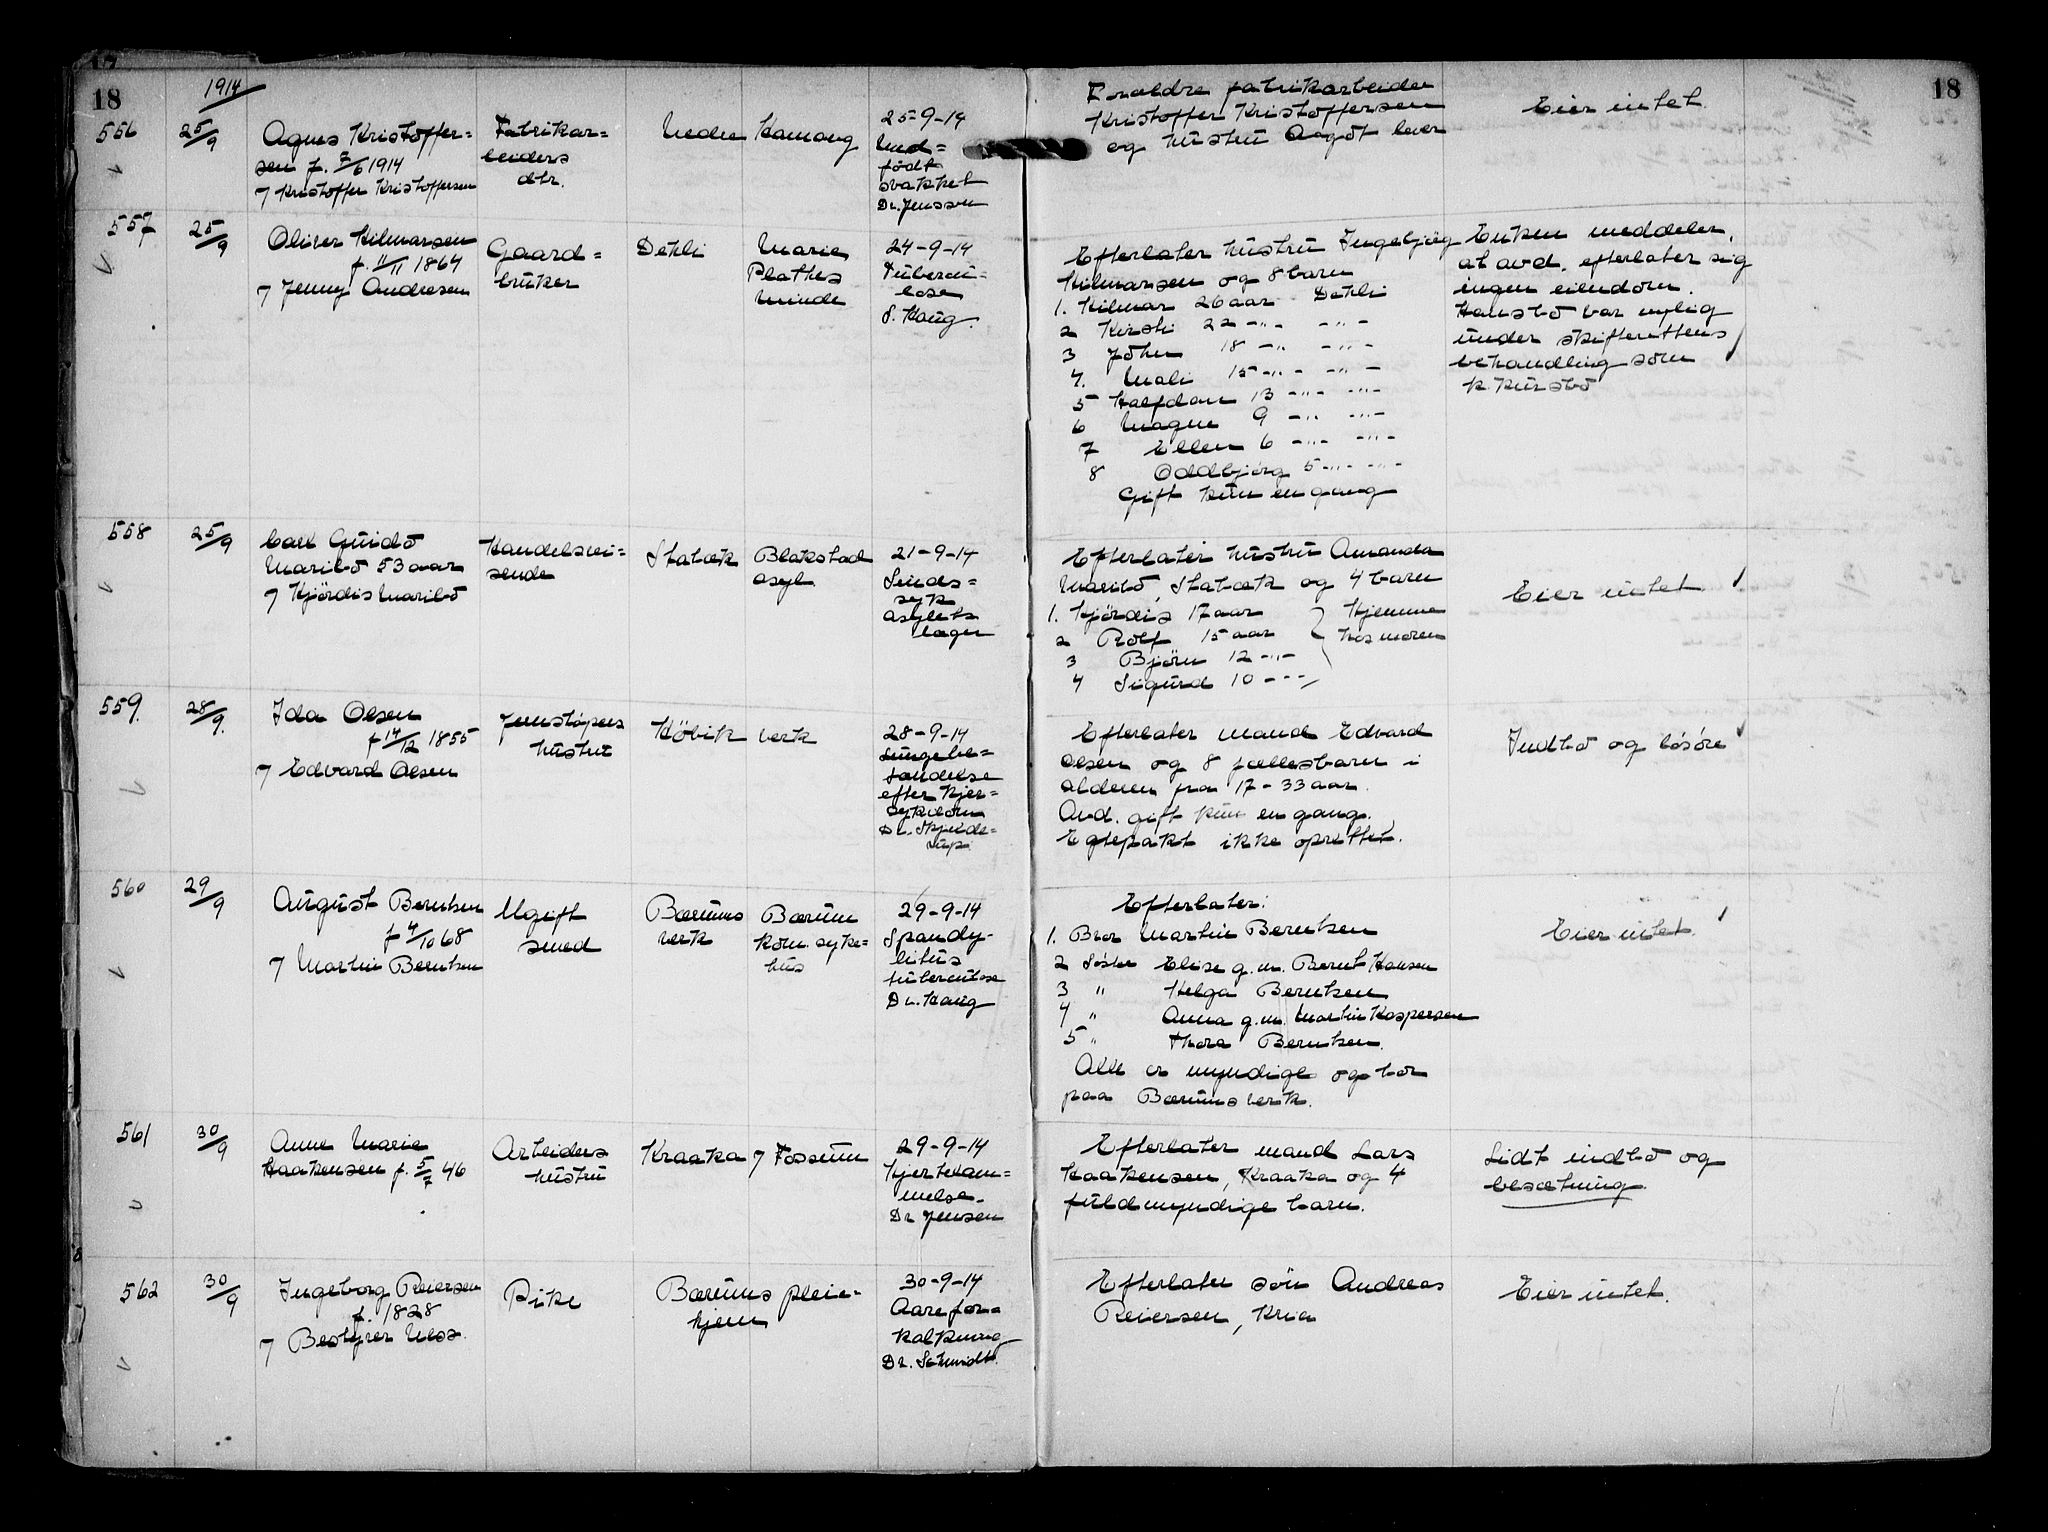 18
1914
18
556
25/9
Agnes Kristoffer=
sen f. 2/6 1914
7 Kristoffer Kristoffersen
Fabrikar=
beiders
dtr.
Nedre Hamang
25-9-14
Med=
født
svakhet
Dr. Jenssen
Foraldre fabrikarbeider
Kristoffer Kristoffersen
og hustru Aagot lever
Eier intet.
557
25/9
Oliver Hilmarsen
f. 11/11 1864
7 Jenny Andresen
Gaard=
bruker
Dehli
Marie
Plathes
minde
24-9-14
Tubercu=
lose
S. Haug.
Efterlater hustru Ingebjørg
Hilmarsen og 8 barn
1. Hilmar 26 aar Dehli
2 Kirsti 22 -"- -"-
3 John 18 -"- -"-
4. Mali 15 -"- -"-
5 Halfdan 13 -"- -"-
6 Magne 9 -"- -"-
7 Ellen 6 -"- -"-
8 Oddbjørg 5 -"- -"-
Gift kun en gang
Enken meddeler,
at avd. efterlater sig
ingen eiendom.
Hans bo var nylig
under skifterettens
behandling som
k.kursbo
558
25/9
Carl Guido
Maribo 53 aar
7 Hjørdis Maribo
Handelsrei=
sende
Stabæk
Blakstad
asyl
21-9-14
Sinds=
syk
asylets
læge
Efterlater hustru Amanda
Maribo, Stabæk og 4 barn
1. Hjørdis 17 aar
2 Rolf 15 aar
3 Bjørn 12 -"-
4 Sigurd 10 -"-
Hjemme
hos moren
Eier intet
559.
28/9.
Ida Olsen
f 14/12 1855
7 Edvard Olsen
Jernstøpers
hustru
Høvik verk
28-9-14
Lungebe=
tændelse
efter hjer=
sykdom
Dr. Skjelde=
rup
Efterlater mand Edvard
Olsen og 8 fællesbarn i
alderen fra 17-33 aar.
Avd. gift kun en gang.
Egtepakt ikke oprettet.
Indbo og løsøre
560
29/9
August Berntsen
f 4/10 68
7 Martin Berntsen
Ugift
smed
Bærums
verk
Bærum
kom. syke=
hus
29-9-14
Spondy-
litus
tuberculose
Dr. Haug
Efterlater:
1. Bror Martin Berntsen
2 Søster Elise g.m. Bernt Hansen
3 " Helga Berntsen
4 " Anna g.m. Martin Kaspersen
5 " Thora Berntsen.
Alle er myndige og bor
paa Bærums verk.
Eier intet.
561
30/9
Anne Marie
Haakensen f. 5/7 46
Arbeiders
hustru
Kraaka 7 Fossum
29-9-14
Hjertelam-
melse.
Dr Jensen
Efterlater mand Lars
Haakensen, Kraaka og 4
fuldmyndige barn.
Lidt indbo og
besætning.
562
30/9
Ingeborg Reiersen
f. 1828
7 Bestyrer Næss.
Pike
Bærums pleie-
hjem
30-9-14
Aarefor=
kalkning
Dr. Schmidt.
Efterlater søn Andreas
Reiersen, Kria
Eier intet.